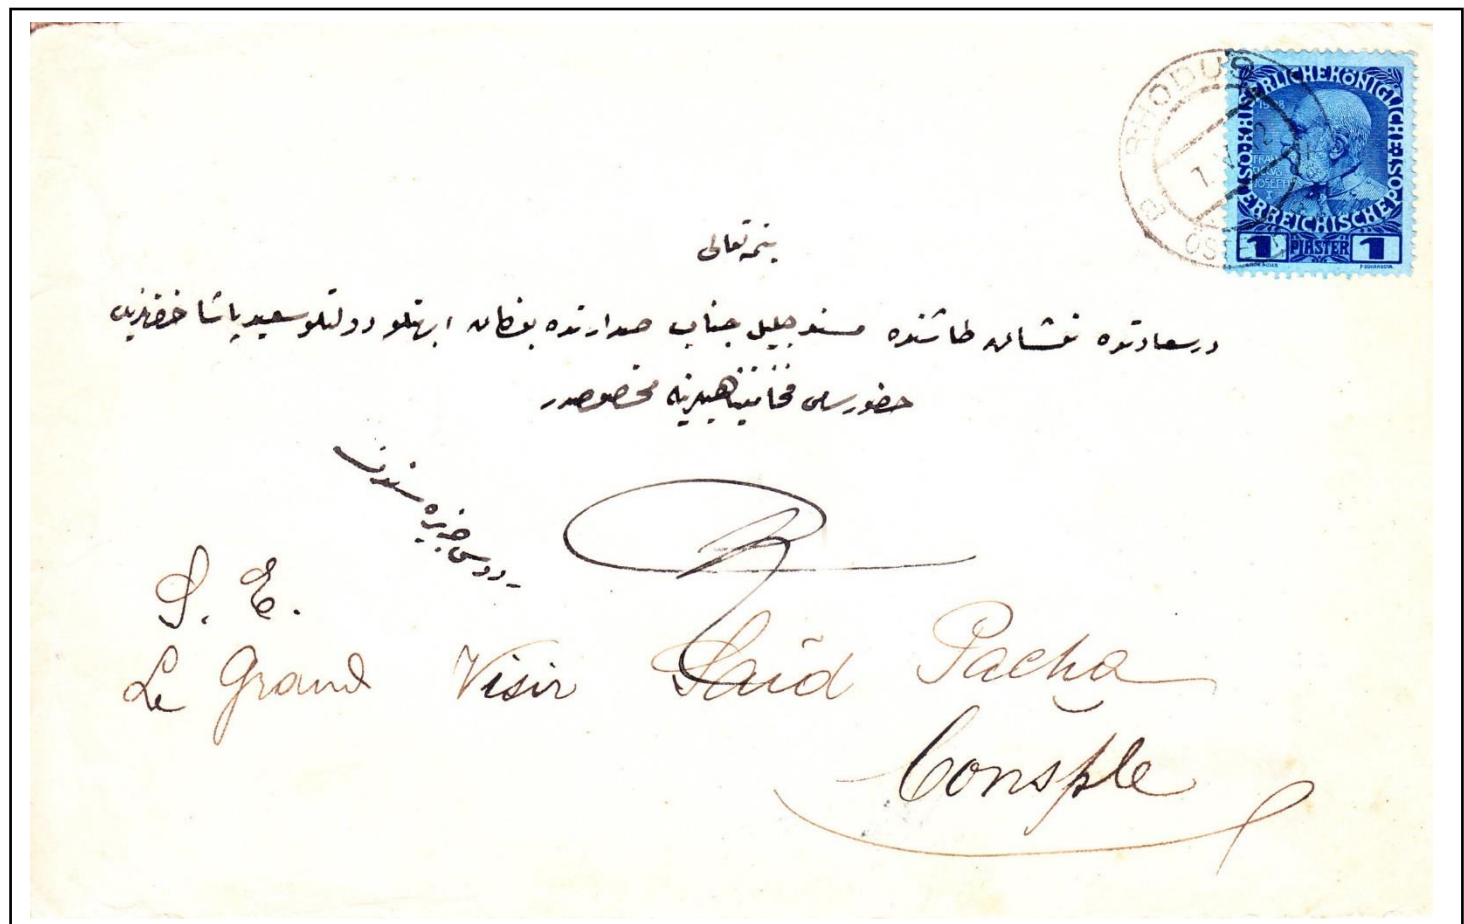 RHODUS
KAISERLICHE KÖNIGLICHE ÖSTERREICHISCHE POST
1908
FRANCISCVS JOSEPH I
1 PIASTER 1
بمنه تعالى
درسعادتده نشان طاشنده مسند جليل جناب صدارتده بولنان ابهتلو دولتلو سعيد پاشا حضرتلرينك
حضور سامئ فخامتپناهيلرينه مخصوصدر
ردوس جزيره سندن
S. E.
Le Grand Visir Saïd Pacha
Consple